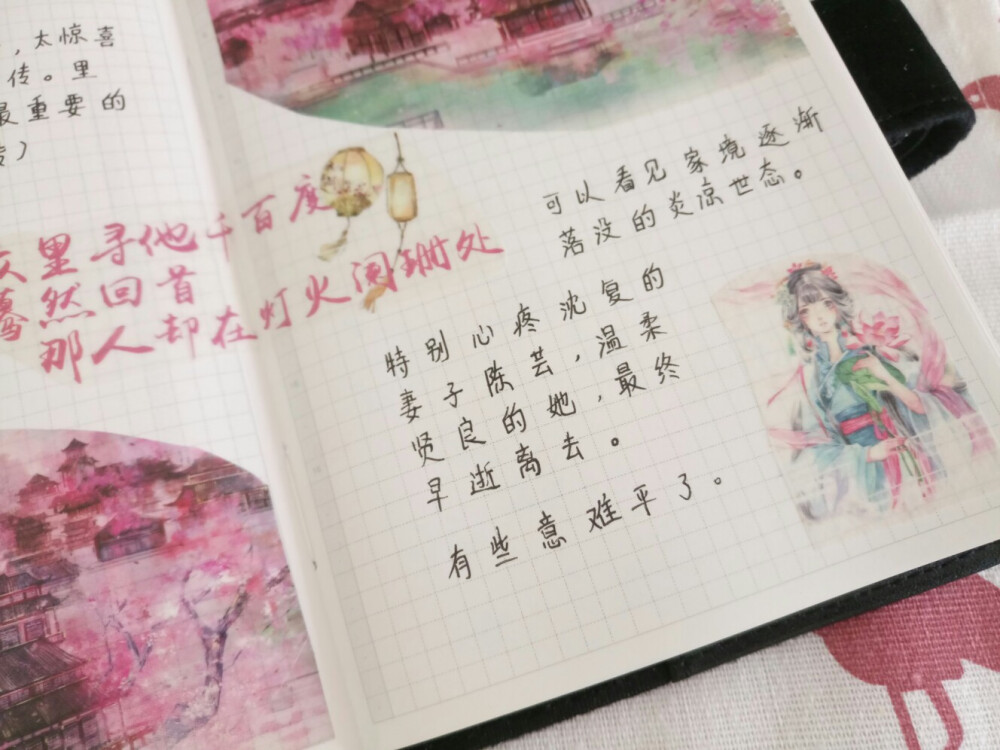 ，太惊喜
传。里
最重要的
里寻他千百度
蓦然回首
那人却在灯火阑珊处
可以看见家境逐渐
落没的炎凉世态。
特别心疼沈复的
妻子陈芸，温柔
贤良的她，最终
早逝离去。
有些意难平了。